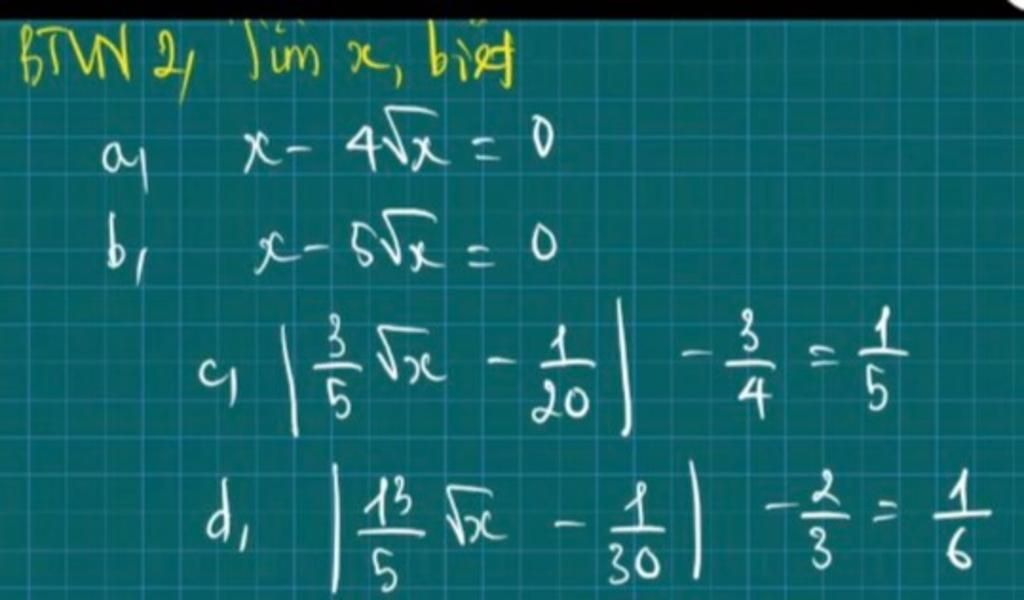 BTVN 2, Tìm x, biết
a, x - 4√x = 0
b, x - 5√x = 0
c, | 3/5 √x - 1/20 | - 3/4 = 1/5
d, | 13/5 √x - 1/30 | - 2/3 = 1/6